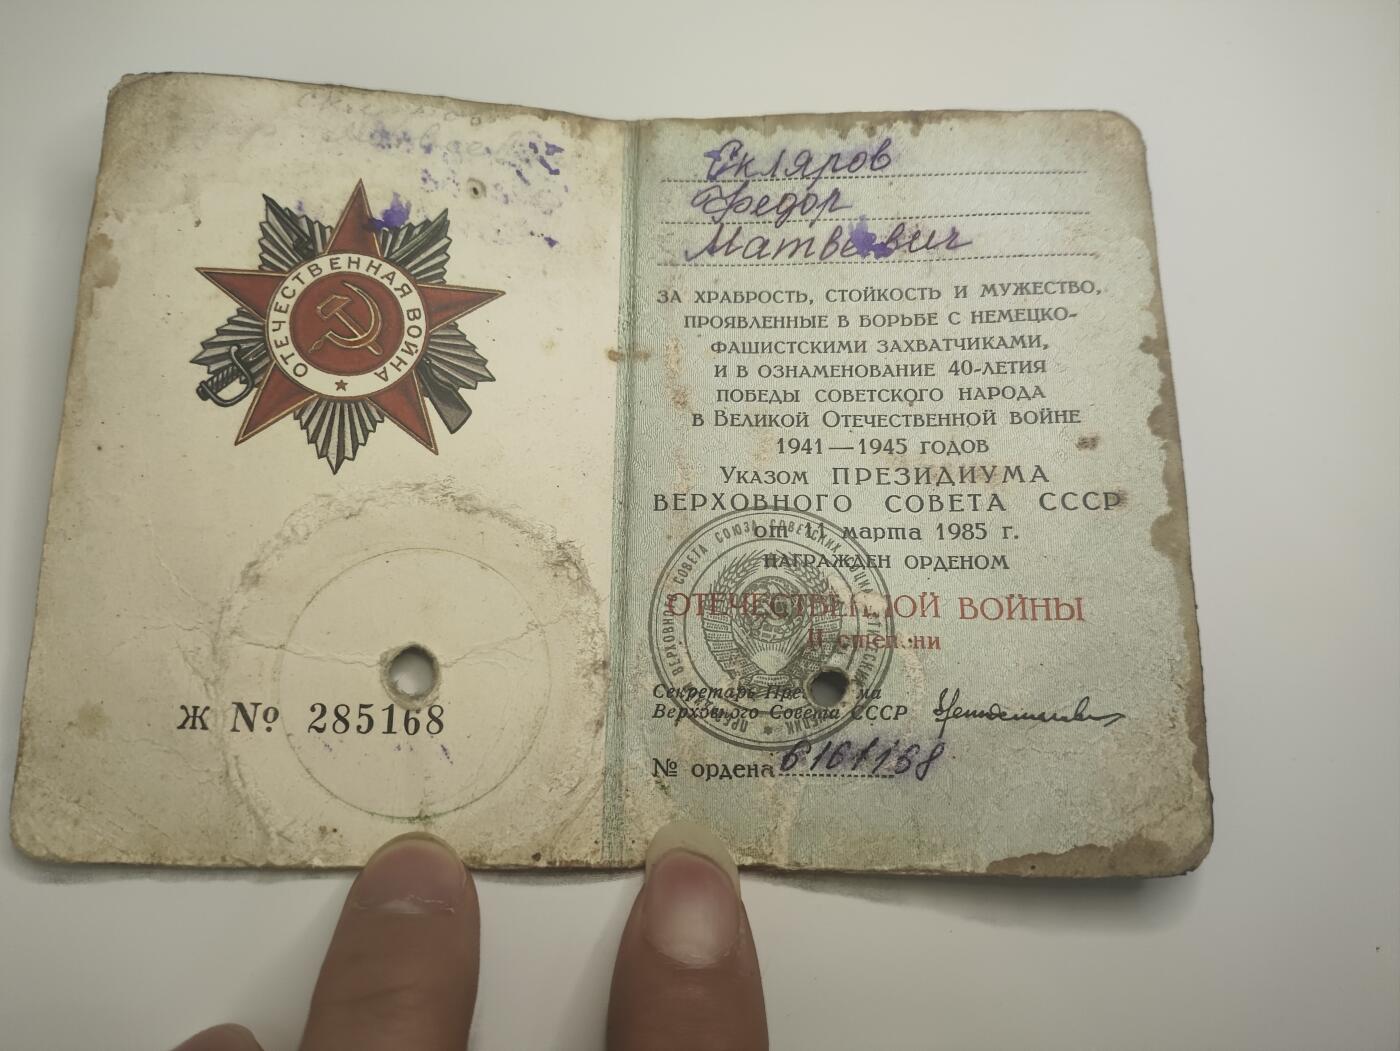 ОТЕЧЕСТВЕННАЯ ВОЙНА
Ж № 285168
Скляров
Федор
Матвеевич
ЗА ХРАБРОСТЬ, СТОЙКОСТЬ И МУЖЕСТВО,
ПРОЯВЛЕННЫЕ В БОРЬБЕ С НЕМЕЦКО-
ФАШИСТСКИМИ ЗАХВАТЧИКАМИ,
И В ОЗНАМЕНОВАНИЕ 40-ЛЕТИЯ
ПОБЕДЫ СОВЕТСКОГО НАРОДА
В ВЕЛИКОЙ ОТЕЧЕСТВЕННОЙ ВОЙНЕ
1941—1945 ГОДОВ
УКАЗОМ ПРЕЗИДИУМА
ВЕРХОВНОГО СОВЕТА СССР
от 11 марта 1985 г.
НАГРАЖДЕН ОРДЕНОМ
ОТЕЧЕСТВЕННОЙ ВОЙНЫ
II степени
Секретарь Президиума
Верховного Совета СССР
№ ордена 6161168